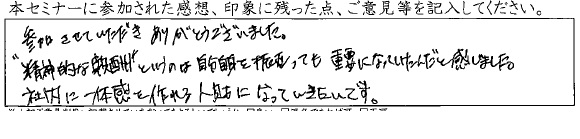 本セミナーに参加された感想、印象に残った点、ご意見等を記入してください。
参加させていただきありがとうございました。
"精神的な報酬"というのは自分自身を振返っても重要になっていたんだと感じました。
社内に一体感を作れる人財になっていきたいです。